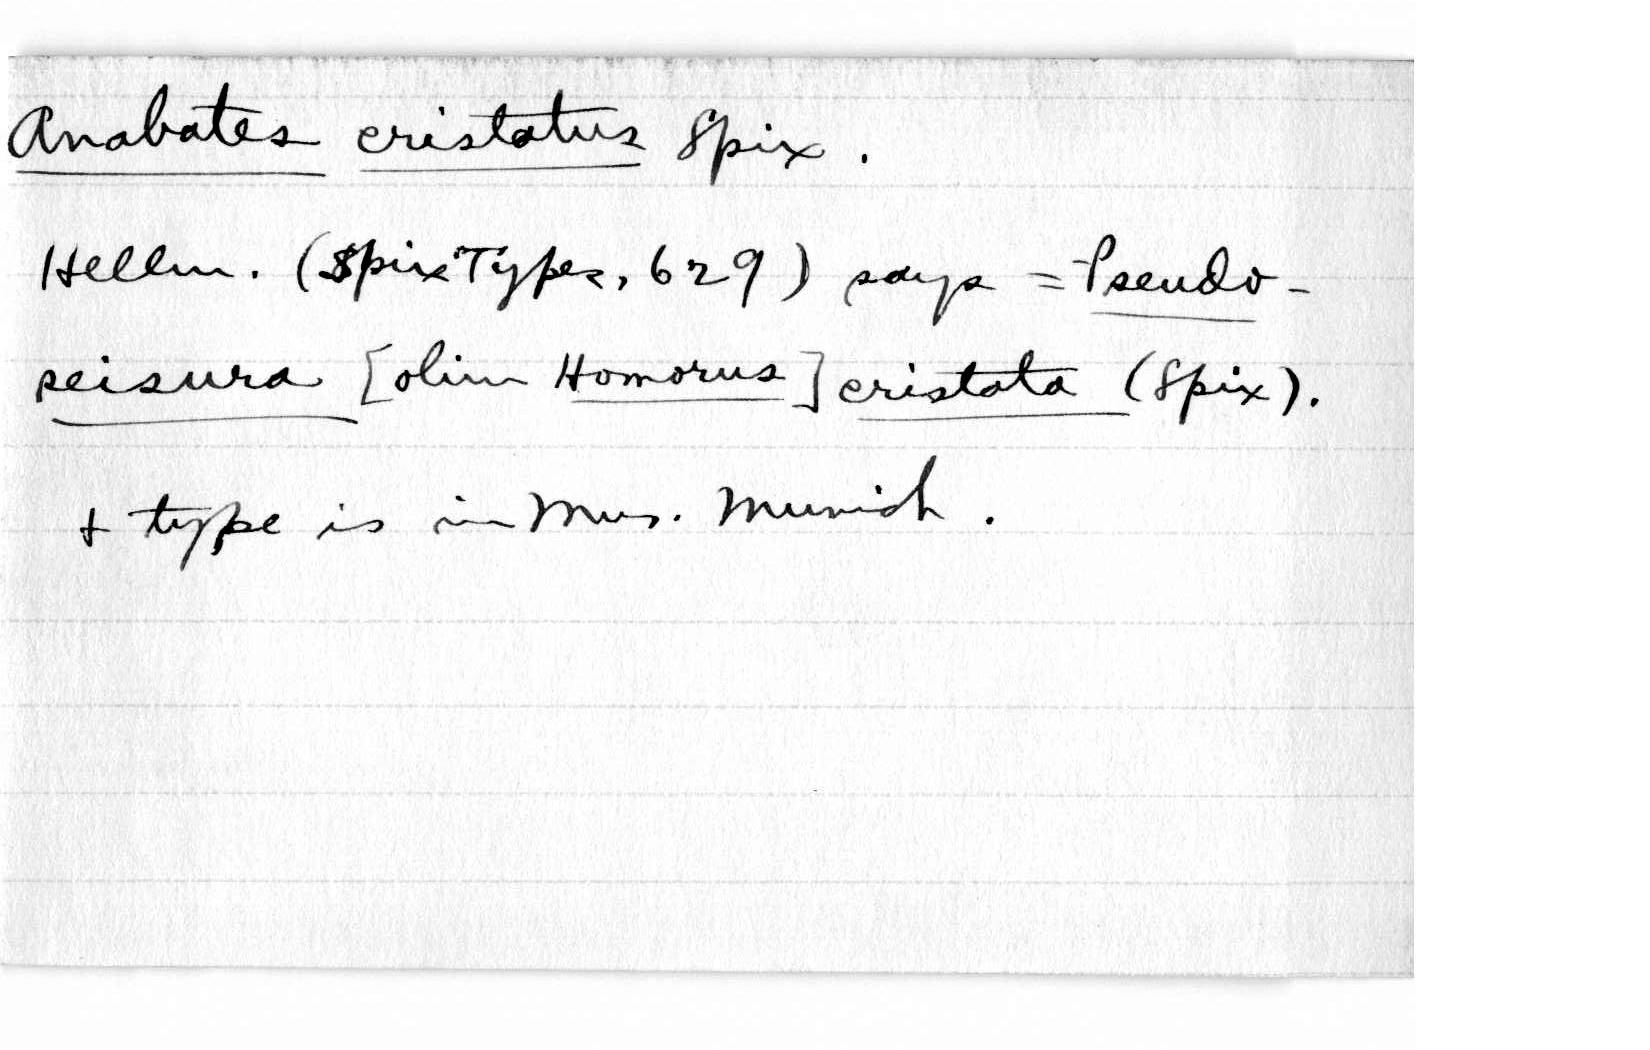 Anabates cristatus Spix.
Hellm. (Spix Types, 629) says = Pseudo-
seisura [olim Homorus] cristata (Spix).
+ type is in Mus. Munich.